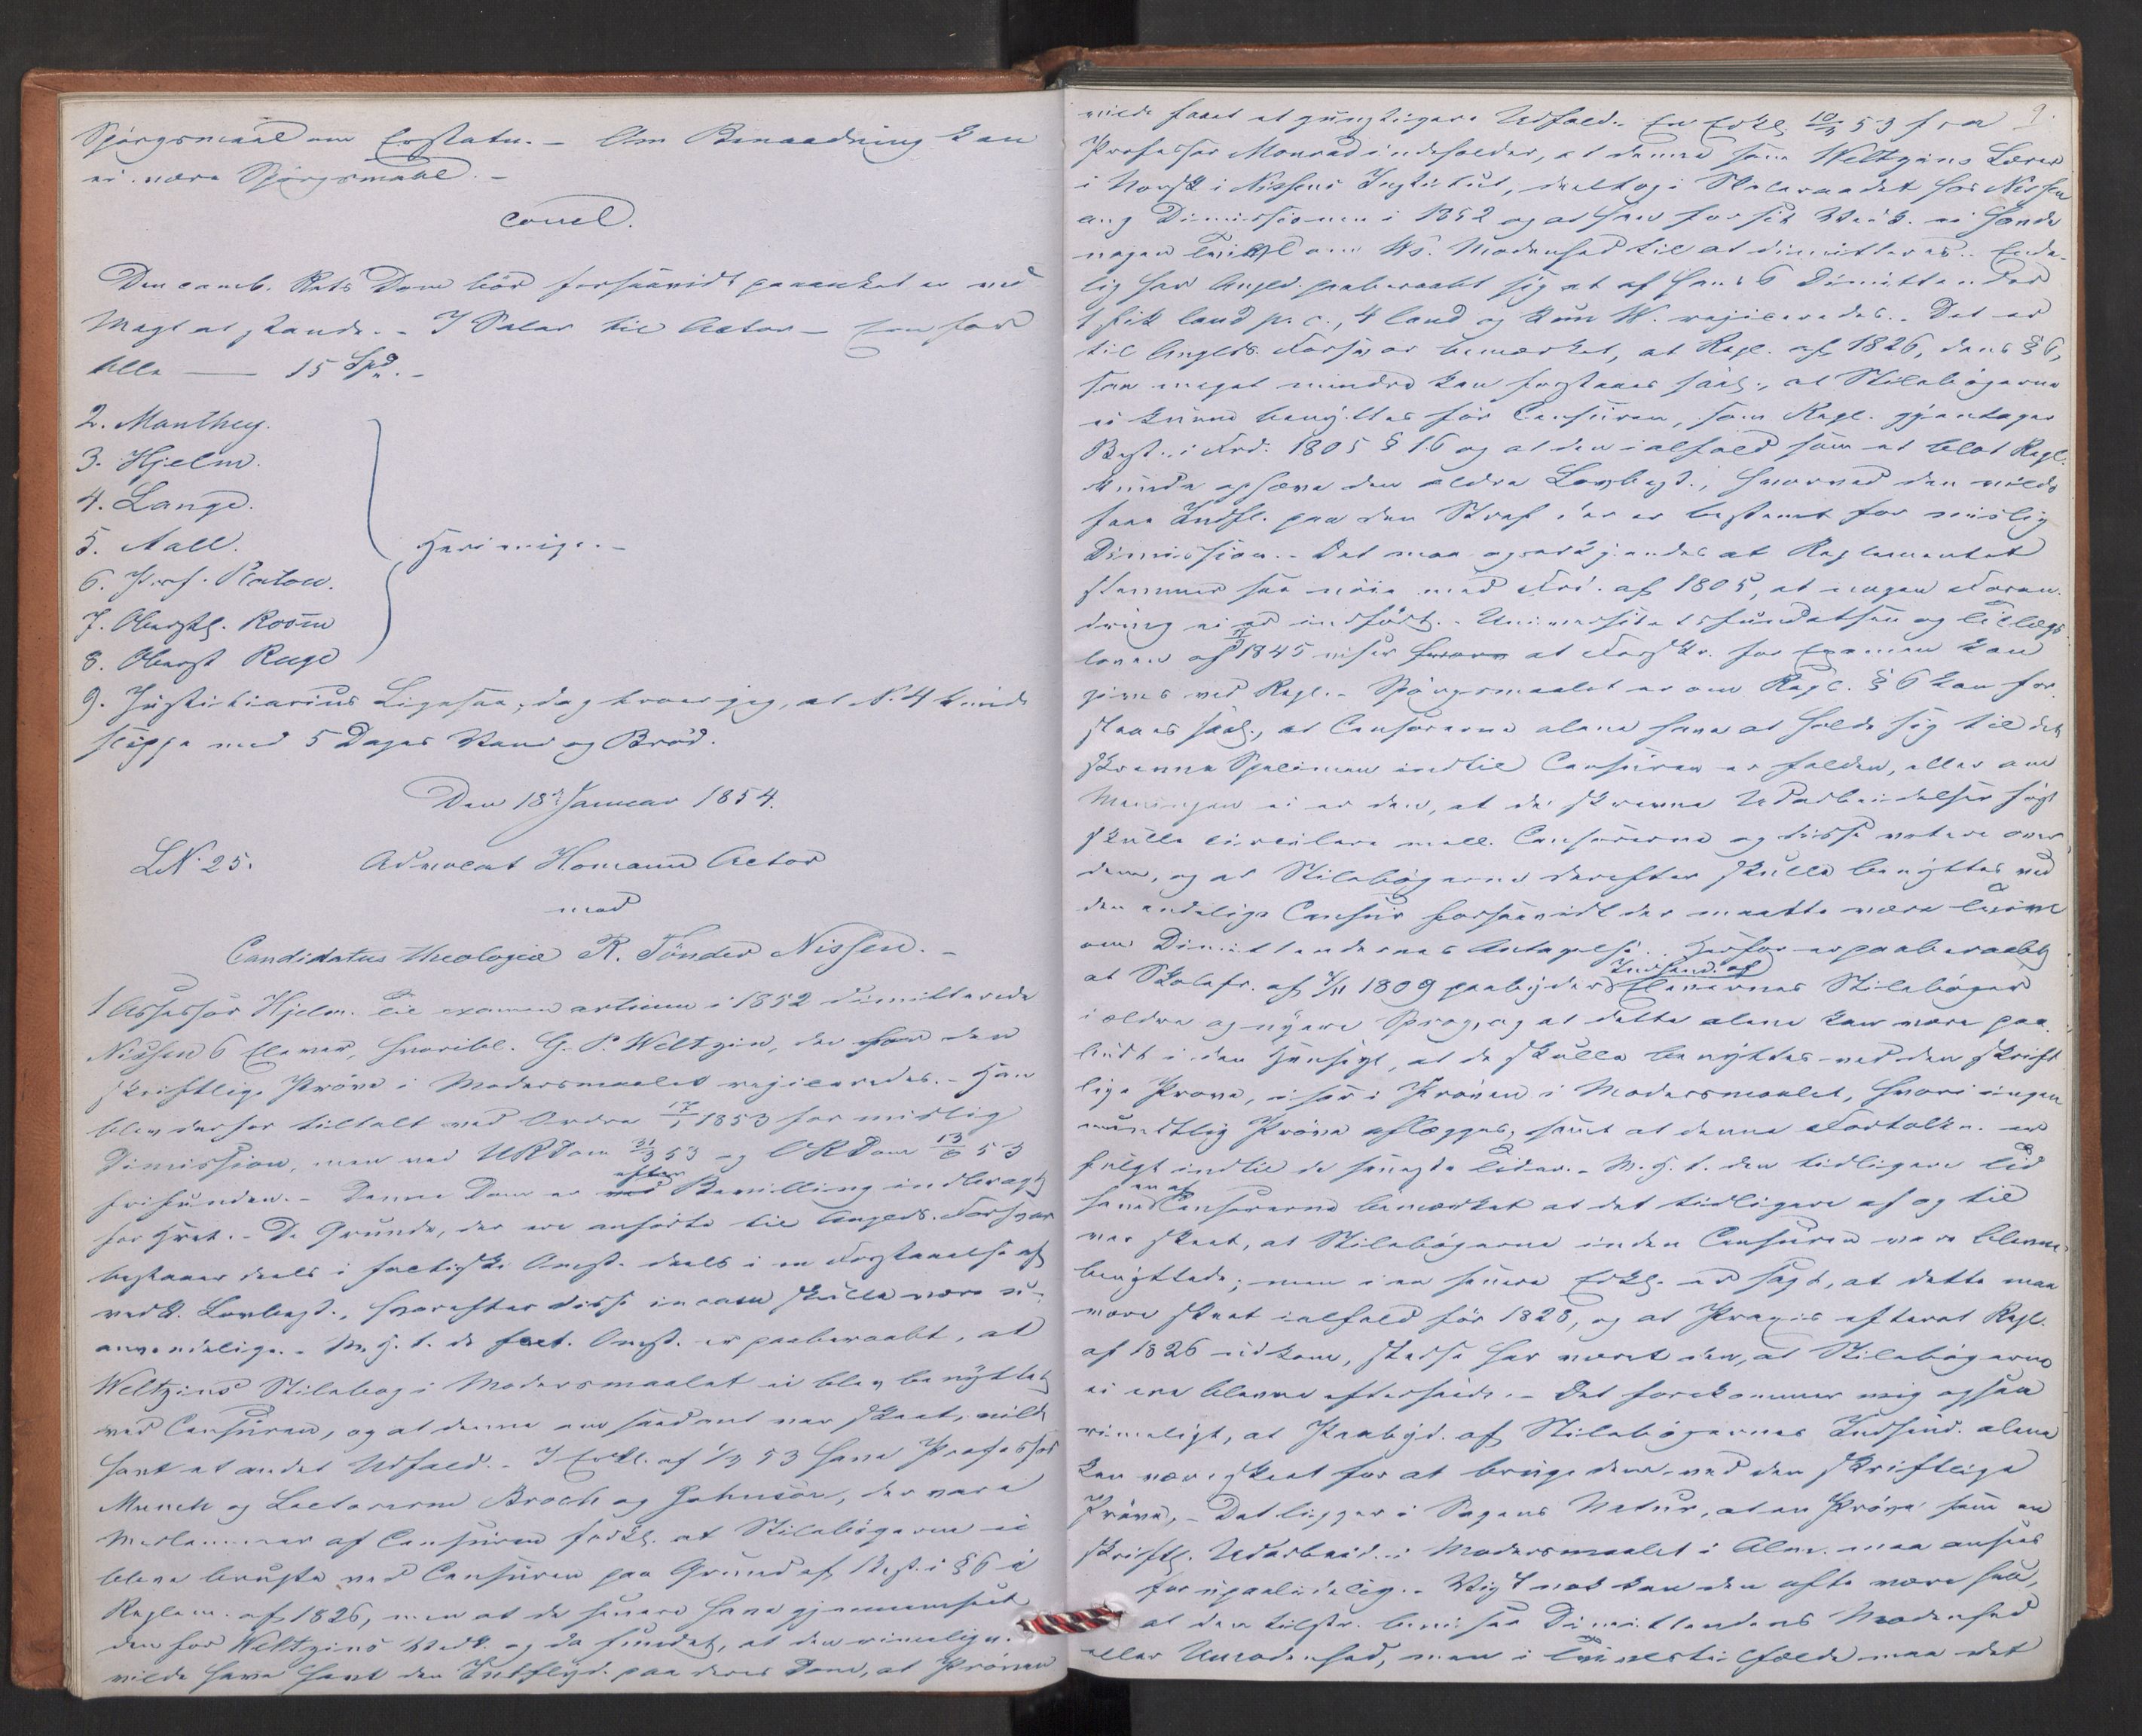 Spørgsmaal om Erstatn. – Om Benaadning kan
ei være Spørgsmaal. –
concl.
Den comb. Rets Dom bør forsaavidt paaanket er ved
Magt at stande. – I Salær til Actor – som for
Alle — 15 Spd. –
2. Manthey.
3. Hjelm.
4. Lange.
5. Aall.
6. Prof. Platou.
7. Oberstl.
8. Oberst Ruge
Heri enige. –
9. Justitiarius Ligesaa, dog troer jeg, at N. 4 kunde
slippe med 5 Dages Vand og Brød.
Den 18de Januar 1854.
LN 25. Advocat Homann Actor
mod
Candidatus theologiæ R. Tønder Nissen. –
1 Assessor Hjelm. Til examen artium i 1852 dimitterede
Nissen 6 Elever, hvoribl. G. P. Weltzin, der ved den
skriftlige Prøve i Modersmaalet rejiceredes. – Han
blev derfor tiltalt ved Ordre 17/1 1853 for mislig
Dimission, men ved URDom 31/3 53 og ORDom 13/6 53
frifunden. – Denne Dom er efter Bevilling indbragt
for Hret. – De Grunde, der ere anførte til Angeds. Forsvar
bestaaer deels i factiske Omst. deels i en Forstaaelse af
vedk. Lovbest., hvorefter disse in casu skulle være u-
anvendelige. – M. H. t. de fact. Omst. er paaberaabt, at
Weltzins Stilebog i Modersmaalet ei blev benyttet
ved Censuren, og at denne om saadant var skeet, vilde
havt et andet Udfald. – I Erkl. af 1/3 53 have Professor
Munch og Lectorerne Broch og Johnson, der vare
Medlemmer af Censuren forkl. at Stilebøgerne ei
bleve brugte ved Censuren paa Grund af Best. i § 6 i
Reglem. af 1826, men at de senere have gjennemseet
den for Weltzins Vedk. og da fundet, at den rimeligv.
vilde have havt den Indflyd. paa deres Dom, at Prøven
9.
vilde faaet et gunstigere Udfald. En Erkl. 10/3 53 fra
Professor Monrad indeholder, at denne som Weltzins Lærer
i Norsk i Nissens Institut, deeltog i Skoleraadet hos Nissen
ang Dimissionen i 1852 og at han for sit Vedk. ei havde
nogen Tvivl om Ws. Modenhed til at dimitteres. – Ende-
lig har Anged. paaberaabt sig at af hans 6 Dimittender
1 fik laud p. c., 4 laud og kun W. rejiceredes. – Det er
til Angeds. Forsvar bemærket, at Regl. af 1826, dens § 6,
saa meget mindre kan forstaaes saal., at Stilebøgerne
ei kunne benyttes før Censuren, som Regl. gjentager
Best. i Frd. 1805 § 16 og at den ialfald som et blot Regl.
ei kunde ophæve den ældre Lovbest., hvorved den vilde
faae Indfl. paa den Straf der er bestemt for mislig
Dimission. – Det maa og erkjendes at Reglementet
stemmer saa nøie med Frd. af 1805, at nogen Foran-
dring ei er indført. – Universitetsfundatsen og Tillægs
loven af 1845 viser at Forskr. for Examen kan
gives ved Regl. – Spørgsmaalet er om Regl. § 6 kan for-
staaes saal., at Censorerne alene have at holde sig til det
skrevne Specimen indtil Censuren er falden, eller om
Meningen ei er den, at de skrevne Udarbeidelser først
skulle circulere mell. Censorerne og disse votere over
dem, og at Stilebøgerne derefter skulle benyttes ved
den endelige Censur forsaavidt der maatte være Tvivl
om Dimittendernes Antagelse. – Herfor er paaberaabt,
at Skolefr. af 7/11 1809 paabyder Indsend. af Elevernes Stilebøger
i ældre og nyere Sprog, og at dette alene kan være paa-
budt i den Hensigt, at de skulle benyttes ved den skrift-
lige Prøve, især i Prøven i Modersmaalet, hvori ingen
mundtlig Prøve aflægges, samt at denne Fortolkn. er
fulgt indtil de seneste Tider. – M. H. t. den tidligere Tid
have en af Censorerne bemærket at det tidligere af og til
var skeet, at Stilebøgerne inden Censuren vare blevne
benyttede; men i en senere Erkl. er sagt, at dette maa
være skeet ialfald før 1828, og at Praxis efterat Regl.
af 1826 udkom, stedse har været den, at Stilebøgerne
ei ere blevne efterseede. – Det forekommer mig ogsaa
rimeligt, at Paabud. af Stilebøgernes Indsend. alene
kan være skeet for at bruge dem ved den skriftlige
Prøve. – Det ligger i Sagens Natur, at en Prøve som en
skriftl. Udarbeid. i Modersmaalet i Alm. maa ansees
for upaalidelig. – Vist nok kan den ofte være saa,
at den tilstr. beviser Dimittendens Modenhed
eller Umodenhed, men i Tvivlstilfælde maa det